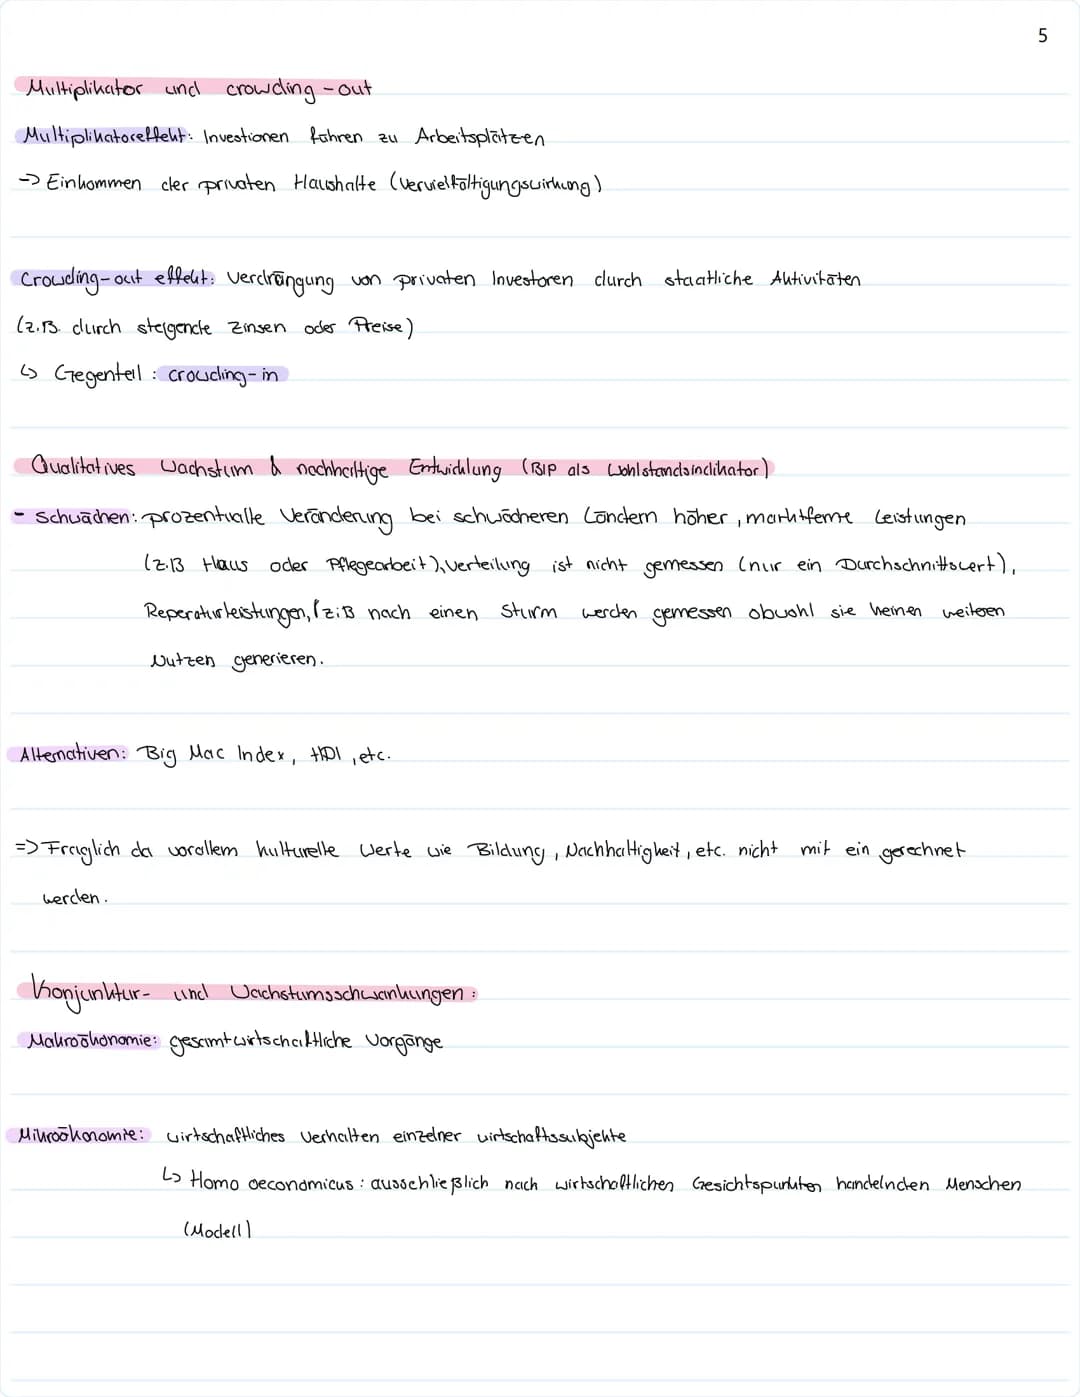 5
Multiplikator und crowding-out
Multiplikatoreffekt: Investionen führen zu Arbeitsplätzen
-> Einkommen der privaten Haushalte (Vervielfältigungswirkung)
Crowding-out effekt: Verdrängung von privaten Investoren durch staatliche Aktivitäten
(z.B. durch steigende Zinsen oder Preise)
↳ Gegenteil: crowding-in
Qualitatives Wachstum & nachhaltige Entwicklung (BIP als Wohlstandsindikator)
- Schwächen: prozentualle Veränderung bei schwächeren Ländern höher, marktferne Leistungen
(z.B Haus oder Pflegearbeit), Verteilung ist nicht gemessen (nur ein Durchschnittswert),
Reperaturleistungen, (z.B nach einen Sturm werden gemessen obwohl sie keinen weiteren
Nutzen generieren.
Alternativen: Big Mac Index, HDI, etc.
=> Fraglich da vorallem kulturelle Werte wie Bildung, Nachhaltigkeit, etc. nicht mit ein gerechnet
werden.
Konjunktur- und Wachstumsschwankungen:
Makroökonomie: gesamtwirtschaftliche Vorgänge
Mikroökonomie: wirtschaftliches Verhalten einzelner wirtschaftssubjekte
↳ Homo oeconomicus: ausschließlich nach wirtschaftlichen Gesichtspunkten handelnden Menschen
(Modell)